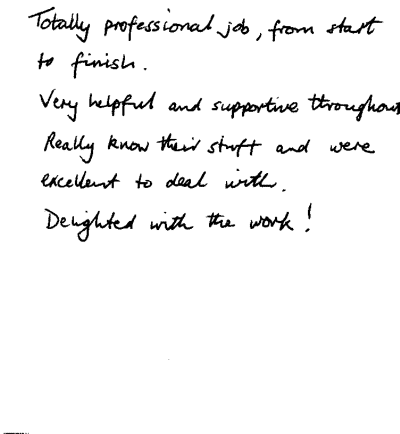 Totally professional job, from start
to finish.
Very helpful and supportive throughout
Really know their stuff and were
excellent to deal with.
Delighted with the work!